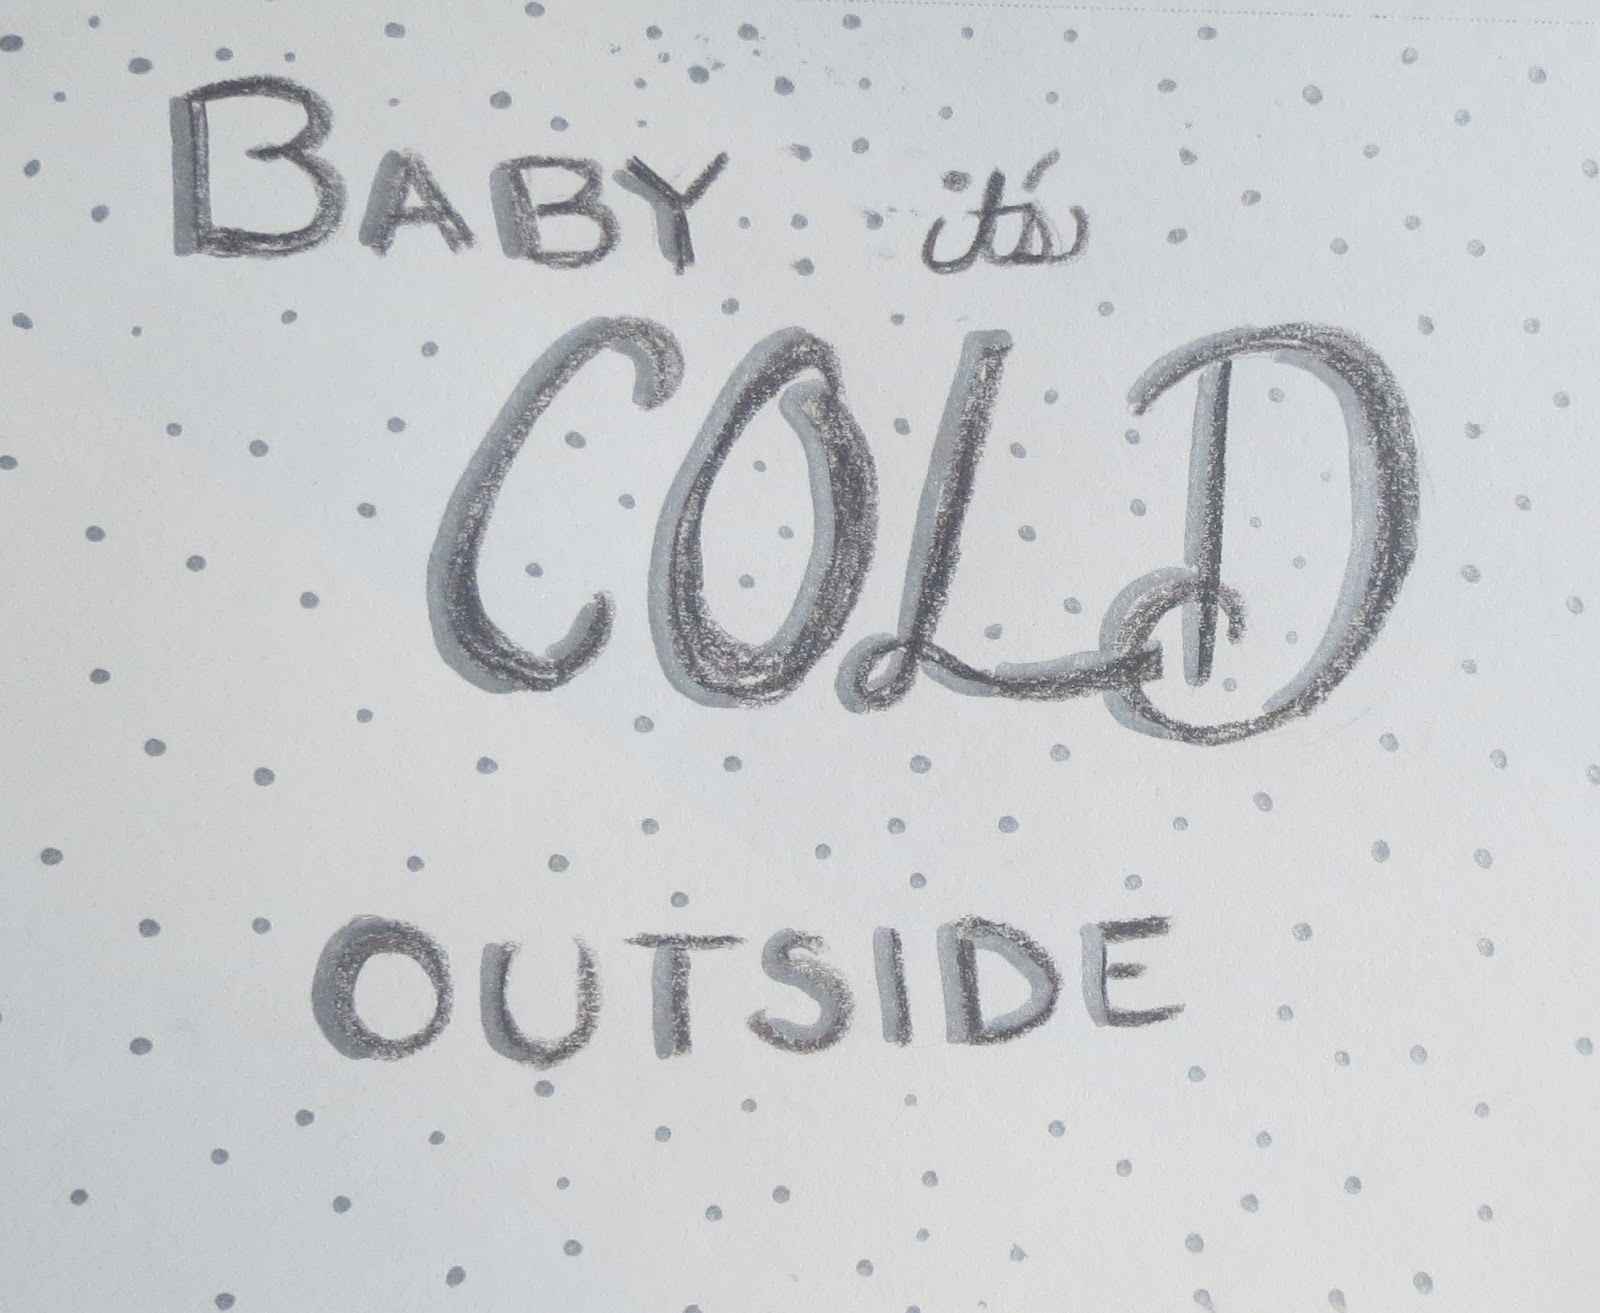 BABY it's
COLD
OUTSIDE